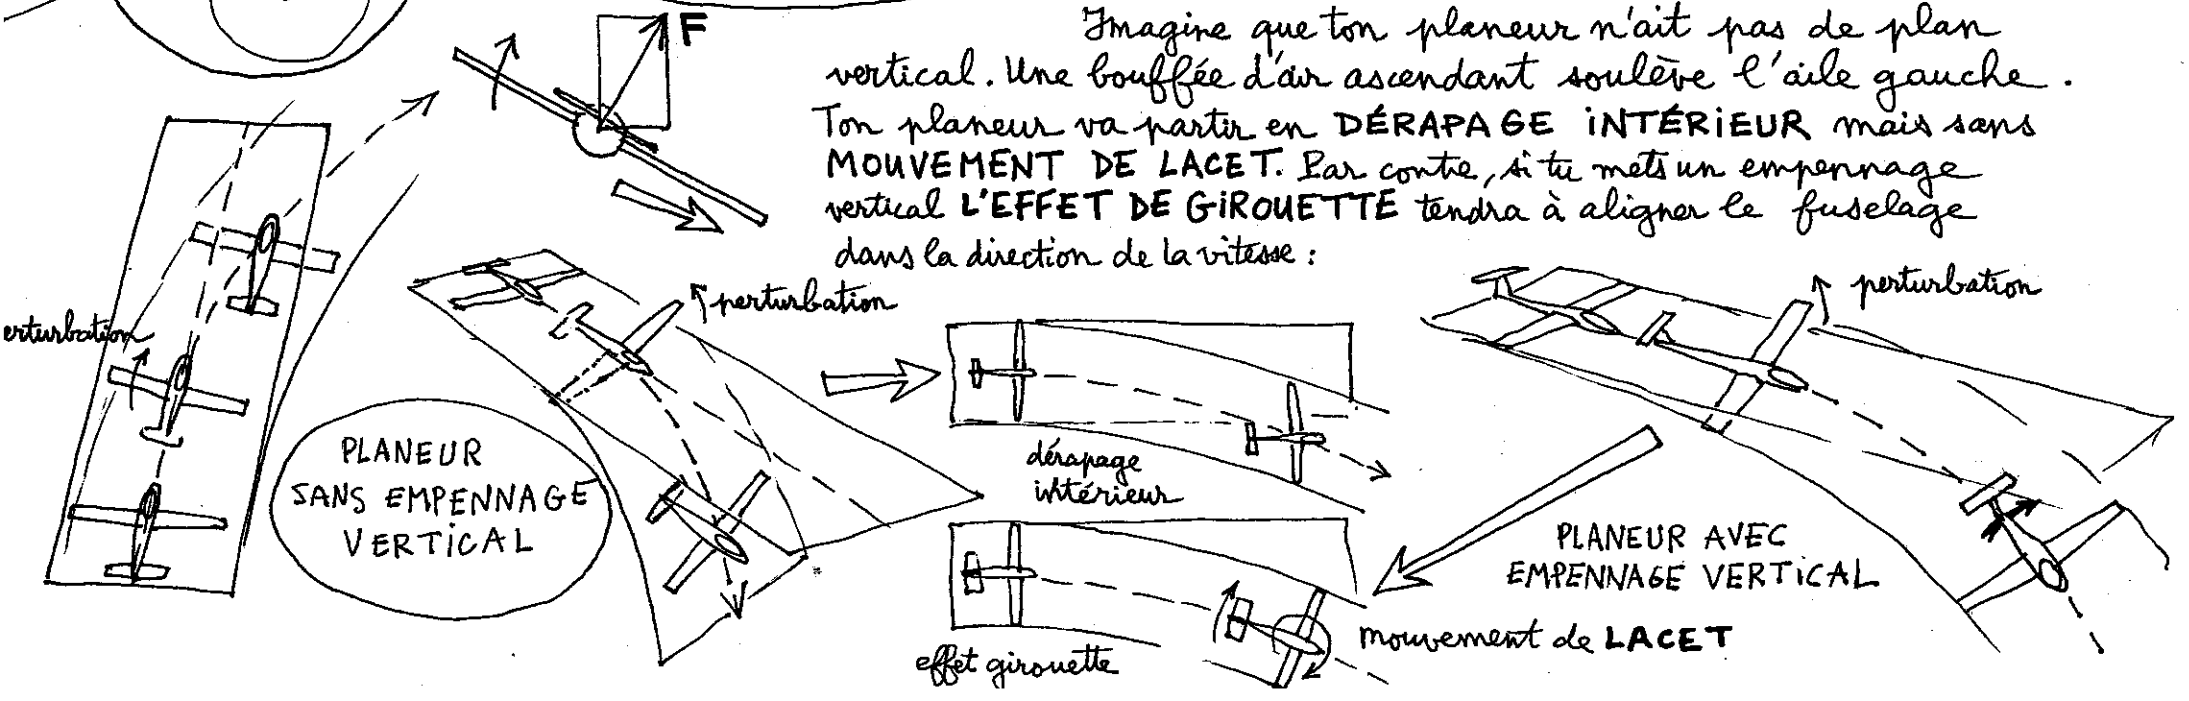 F
Imagine que ton planeur n'ait pas de plan
vertical. Une bouffée d'air ascendant soulève l'aile gauche.
Ton planeur va partir en DÉRAPAGE iNTÉRiEUR mais sans
MOUVEMENT DE LACET. Par contre, si tu mets un empennage
vertical L'EFFET DE GiROUETTE tendra à aligner le fuselage
dans la direction de la vitesse :
erturbation
perturbation
perturbation
PLANEUR
SANS EMPENNAGE
VERTiCAL
dérapage
intérieur
PLANEUR AVEC
EMPENNAGE VERTiCAL
effet girouette
mouvement de LACET